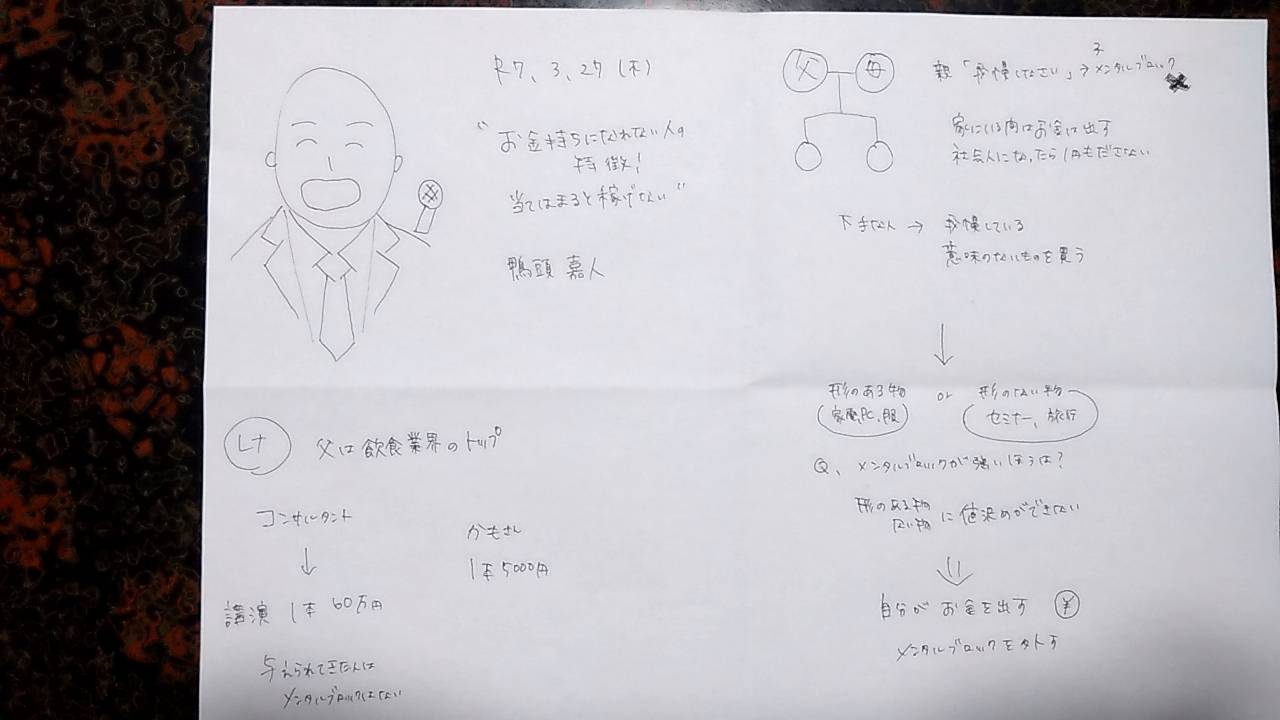 R7、3、27(木)
"お金持ちになれない人の
特徴!
当てはまると稼げない"
鴨頭 嘉人
父は飲食業界のトップ
コンサルタント
↓
講演 1本 60万円
かもさん
1本 5000円
与えられてきた人は
メンタルブロックはない
父 母
子
親「我慢しなさい」→メンタルブロック
家にいる間はお金は出す
社会人になったら1円もださない
下手な人 → 我慢している
意味のないものを買う
↓
形のある物 or 形のない物
家電PC、服 セミナー、旅行
Q、メンタルブロックが強いほうは?
形のある物
ない物 に値決めができない
自分がお金を出す ¥
メンタルブロックを外す